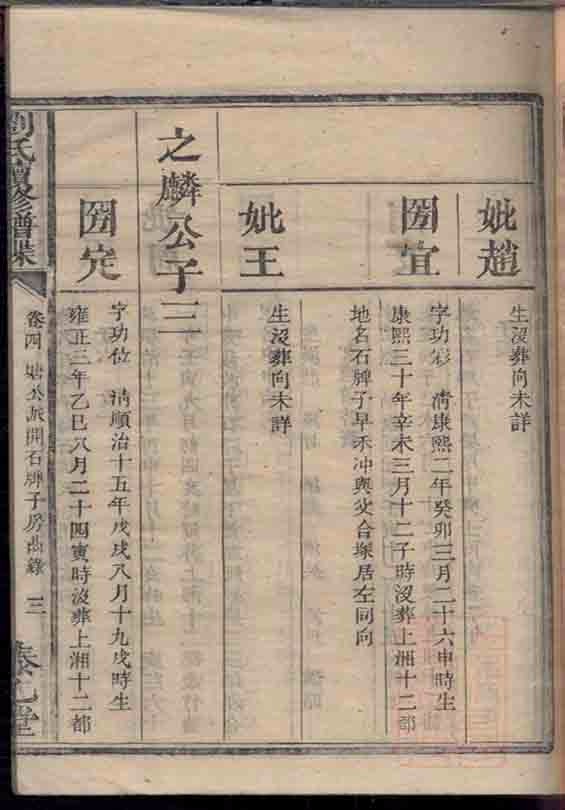 妣趙
生沒葬向未詳
圀宜
字功彩 清康熙二年癸卯三月二十六申時生
康熙三十年辛未三月十二子時沒葬上湘十二都
地名石牌子早禾冲與父合塚居左同向
妣王
生沒葬向未詳
之麟公子三
圀定
字功位 清順治十五年戊戌八月十九戌時生
雍正三年乙巳八月二十四寅時沒葬上湘十二都
劉氏續修譜牒
卷四 塘公派開石牌子房齒錄 三